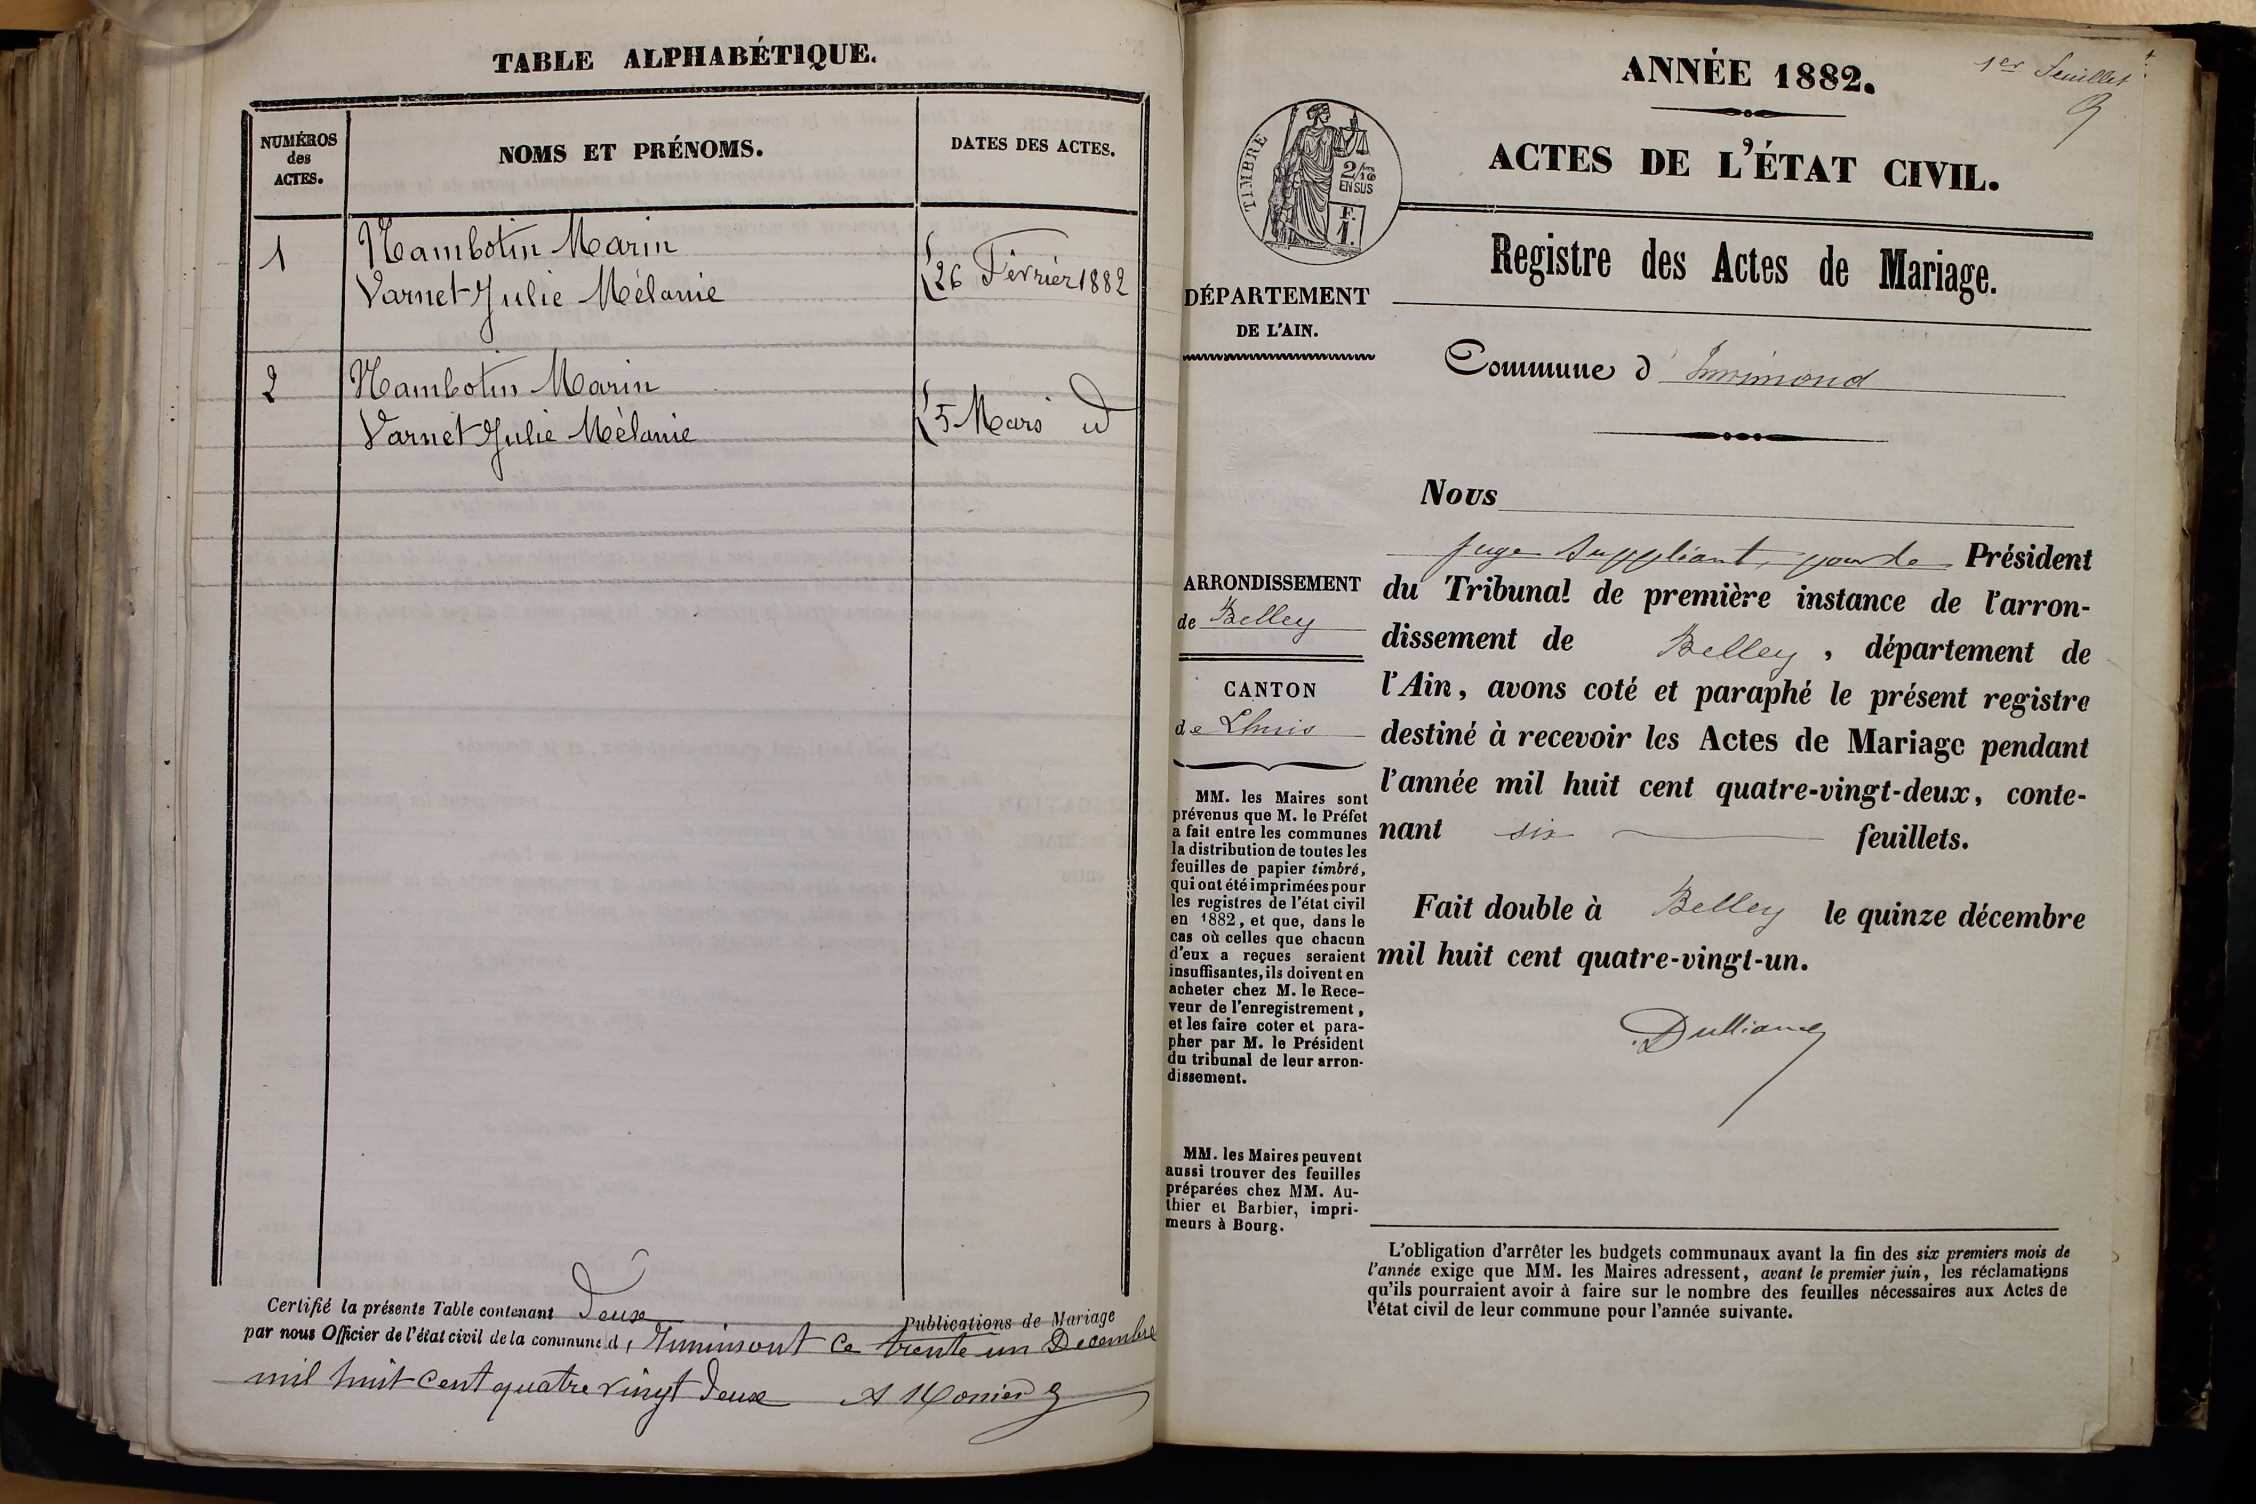 TABLE ALPHABÉTIQUE.
NUMÉROS
des
ACTES.
NOMS ET PRÉNOMS.
DATES DES ACTES.
1
Nambotin Marin
Varnet Julie Mélanie
26 Février 1882
2
Nambotin Marin
Varnet Julie Mélanie
5 Mars d
Certifié la présente Table contenant deux Publications de Mariage
par nous Officier de l'état civil de la commune d' Innimont ce trente un Décembre
mil huit cent quatre vingt deux
ANNÉE 1882.
1er feuillet
ACTES DE L'ÉTAT CIVIL.
TIMBRE
2/10
EN SUS
F.
1.
Registre des Actes de Mariage.
DÉPARTEMENT
DE L'AIN.
Commune d' Innimond
ARRONDISSEMENT
de Belley
CANTON
de Lhuis
MM. les Maires sont
prévenus que M. le Préfet
a fait entre les communes
la distribution de toutes les
feuilles de papier timbré,
qui ont été imprimées pour
les registres de l'état civil
en 1882, et que, dans le
cas où celles que chacun
d'eux a reçues seraient
insuffisantes, ils doivent en
acheter chez M. le Rece-
veur de l'enregistrement,
et les faire coter et para-
pher par M. le Président
du tribunal de leur arron-
dissement.
MM. les Maires peuvent
aussi trouver des feuilles
préparées chez MM. Au-
thier et Barbier, impri-
meurs à Bourg.
Nous
Juge Suppléant, pour le Président
du Tribunal de première instance de l'arron-
dissement de Belley, département de
l'Ain, avons coté et paraphé le présent registre
destiné à recevoir les Actes de Mariage pendant
l'année mil huit cent quatre-vingt-deux, conte-
nant six feuillets.
Fait double à Belley le quinze décembre
mil huit cent quatre-vingt-un.
L'obligation d'arrêter les budgets communaux avant la fin des six premiers mois de
l'année exige que MM. les Maires adressent, avant le premier juin, les réclamations
qu'ils pourraient avoir à faire sur le nombre des feuilles nécessaires aux Actes de
l'état civil de leur commune pour l'année suivante.